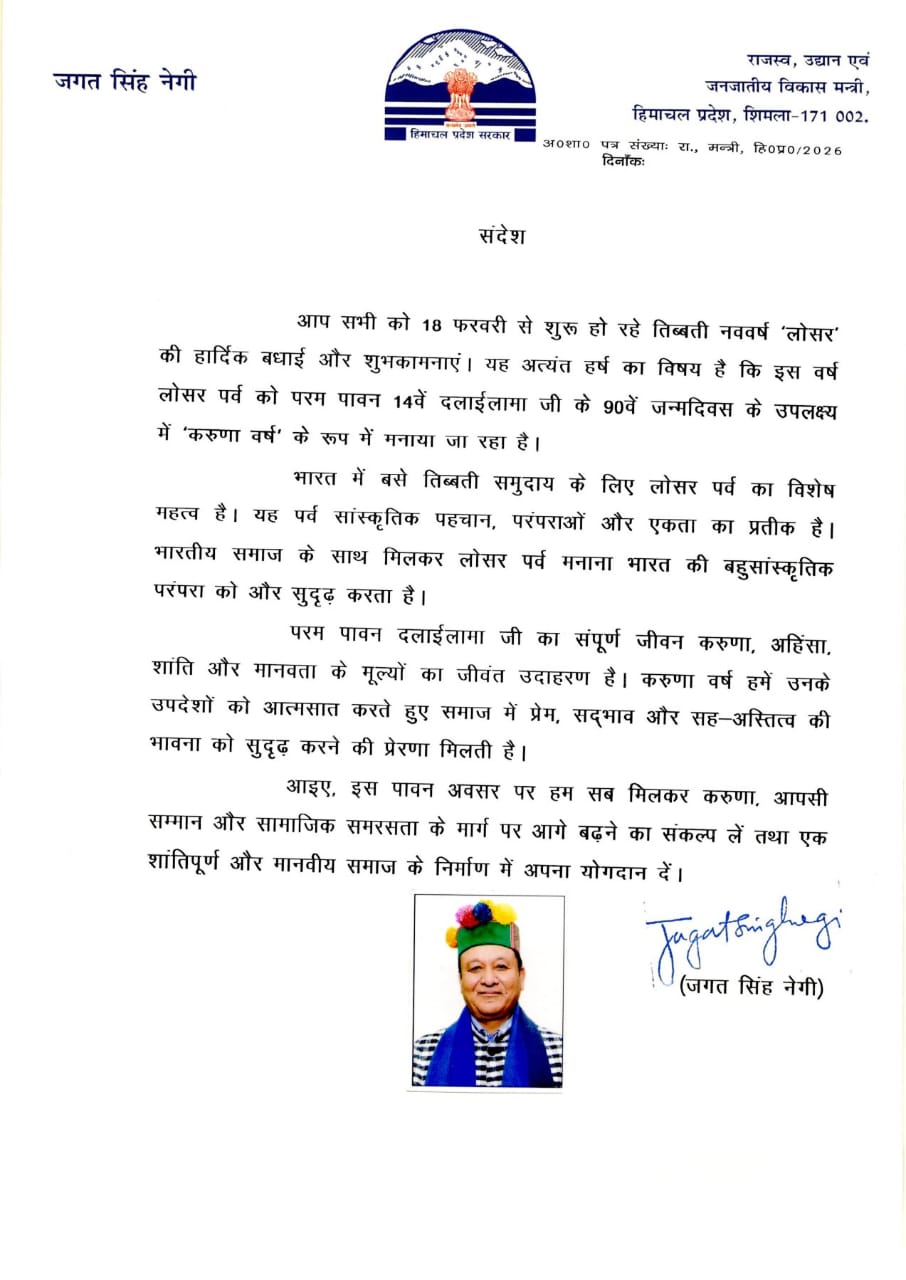 जगत सिंह नेगी
हिमाचल प्रदेश सरकार
राजस्व, उद्यान एवं
जनजातीय विकास मन्त्री,
हिमाचल प्रदेश, शिमला-171 002.
अ०शा० पत्र संख्याः रा., मन्त्री, हि०प्र०/2026
दिनाँकः
संदेश
आप सभी को 18 फरवरी से शुरू हो रहे तिब्बती नववर्ष ‘लोसर’
की हार्दिक बधाई और शुभकामनाएं। यह अत्यंत हर्ष का विषय है कि इस वर्ष
लोसर पर्व को परम पावन 14वें दलाईलामा जी के 90वें जन्मदिवस के उपलक्ष्य
में ‘करुणा वर्ष’ के रूप में मनाया जा रहा है।
भारत में बसे तिब्बती समुदाय के लिए लोसर पर्व का विशेष
महत्व है। यह पर्व सांस्कृतिक पहचान, परंपराओं और एकता का प्रतीक है।
भारतीय समाज के साथ मिलकर लोसर पर्व मनाना भारत की बहुसांस्कृतिक
परंपरा को और सुदृढ़ करता है।
परम पावन दलाईलामा जी का संपूर्ण जीवन करुणा, अहिंसा,
शांति और मानवता के मूल्यों का जीवंत उदाहरण है। करुणा वर्ष हमें उनके
उपदेशों को आत्मसात करते हुए समाज में प्रेम, सद्‌भाव और सह–अस्तित्व की
भावना को सुदृढ़ करने की प्रेरणा मिलती है।
आइए, इस पावन अवसर पर हम सब मिलकर करुणा, आपसी
सम्मान और सामाजिक समरसता के मार्ग पर आगे बढ़ने का संकल्प लें तथा एक
शांतिपूर्ण और मानवीय समाज के निर्माण में अपना योगदान दें।
Jagatsinghnegi
(जगत सिंह नेगी)